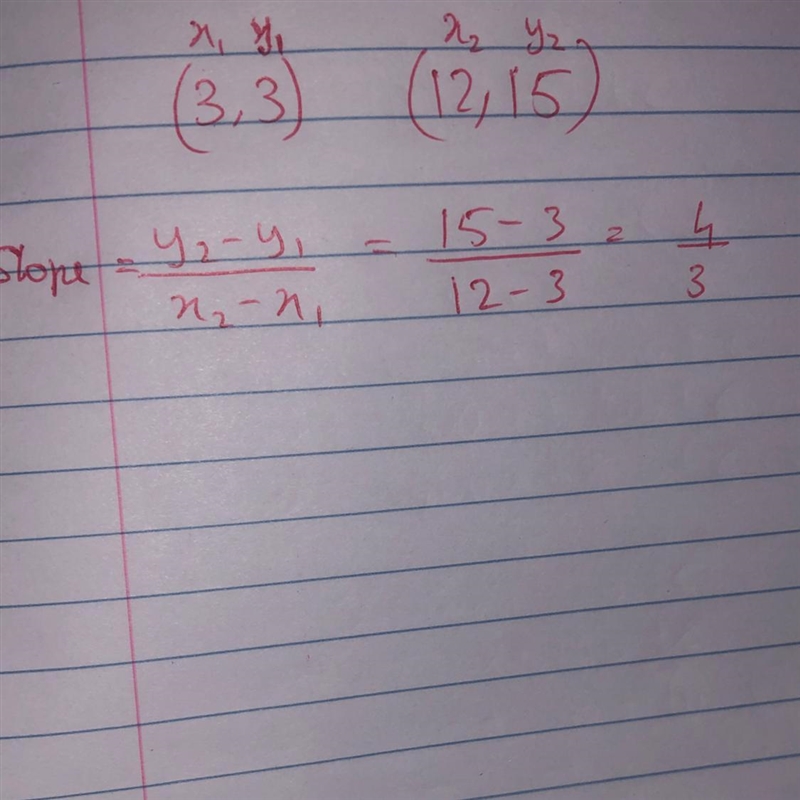 x₁ y₁ x₂ y₂
(3,3) (12,15)
Slope = y₂-y₁/x₂-x₁ = 15-3/12-3 = 4/3